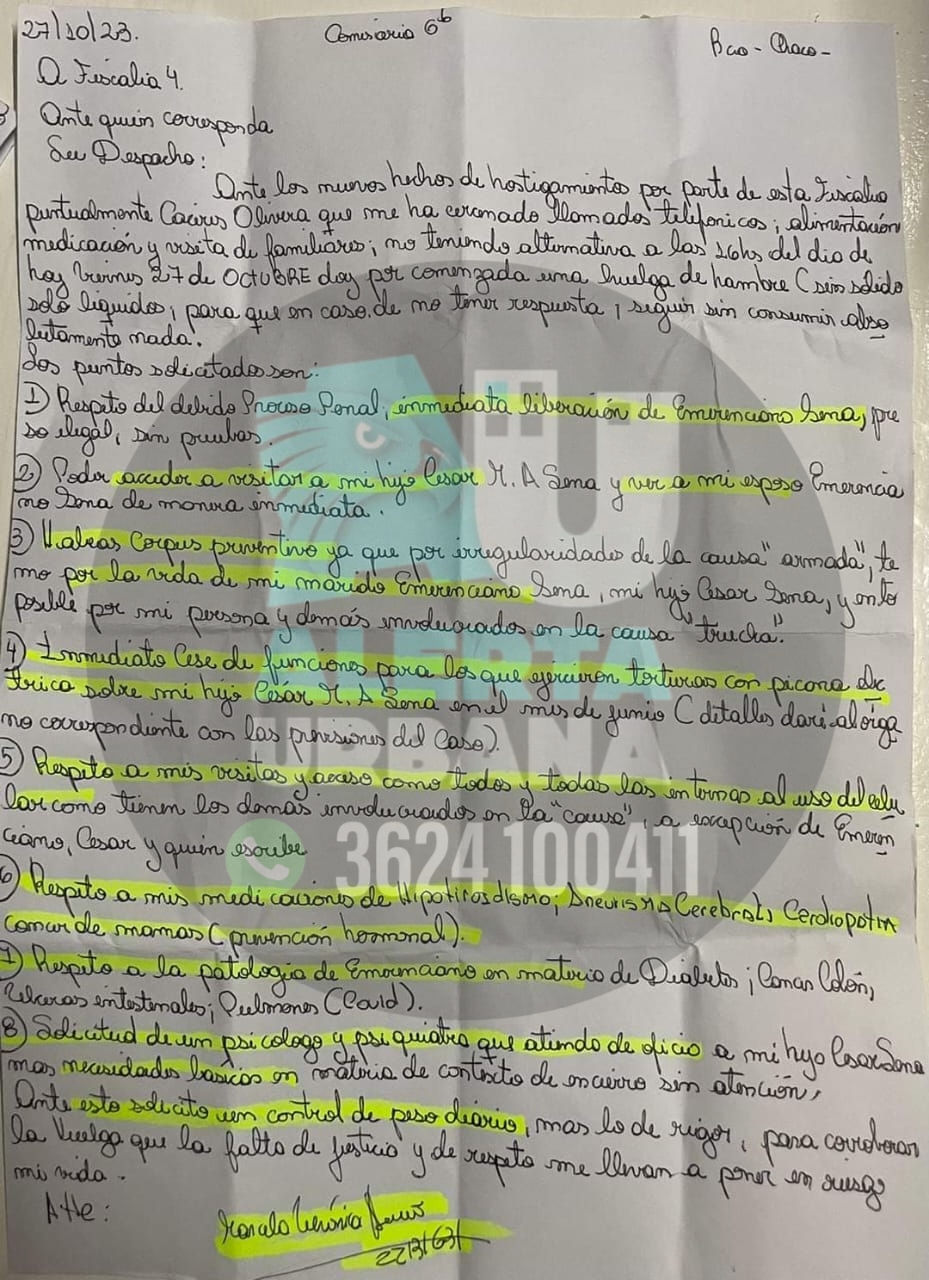 27/10/23. Comisaria 6ta Bco - Chaco -
A Fiscalia 4.
Ante quien corresponda
Su Despacho:
Ante los nuevos hechos de hostigamientos por parte de esta Fiscalia
puntualmente Caceres Olivera que me ha cercenado llamados telefonicos; alimentación
medicación y visita de familiares; no teniendo alternativa a las 16hs del dia de
hoy viernes 27 de OCTUBRE doy por comenzada una huelga de hambre (sin solido
solo liquidos; para que en caso de no tener respuesta, seguir sin consumir abso
lutamente nada.
Los puntos solicitados son:
1) Respeto del debido Proceso Penal, inmediata liberación de Emerenciano Sena, pre
so ilegal, sin pruebas.
2) Poder acceder a visitar a mi hijo Cesar M. A Sena y ver a mi esposo Emerencia
no Sena de manera inmediata.
3) Habeas Corpus preventivo ya que por irregularidades de la causa "armada", te
mo por la vida de mi marido Emerenciano Sena, mi hijo Cesar Sena, y
posible por mi persona y demás involucrados en la causa "trucha".
4) Inmediato Cese de funciones para los que ejercieron torturas con picana elec
trica sobre mi hijo César M. A Sena en el mes de junio (detalles daré al órga
no correspondiente con las previsiones del Caso).
5) Respeto a mis visitas y acceso como todos y todas las internas al uso del celu
lar como tienen los demas involucrados en la "causa", a excepción de Emeren
ciano, Cesar y quien escribe
6) Respeto a mis medicaciones de Hipotiroidismo; Aneurisma Cerebral; Cardiopatia
cancer de mamas (prevención hormonal).
7) Respeto a la patología de Emerenciano en materia de Diabetes; Cancer Colón,
Ulceras intestenales; Pulmones (Covid).
8) Solicitud de un psicologo y psiquiatra que atienda de oficio a mi hijo Cesar Sena
mas necesidades basicas en materia de contexto de encierro sin atención,
Ante esto solicito un control de peso diário, mas lo de rigor, para corroborar
la huelga que la falta de justicia y de respeto me llevan a poner en riesgo
mi vida.
Atte:
Marcela Verónica
ALERTA
URBANA
3624 100411